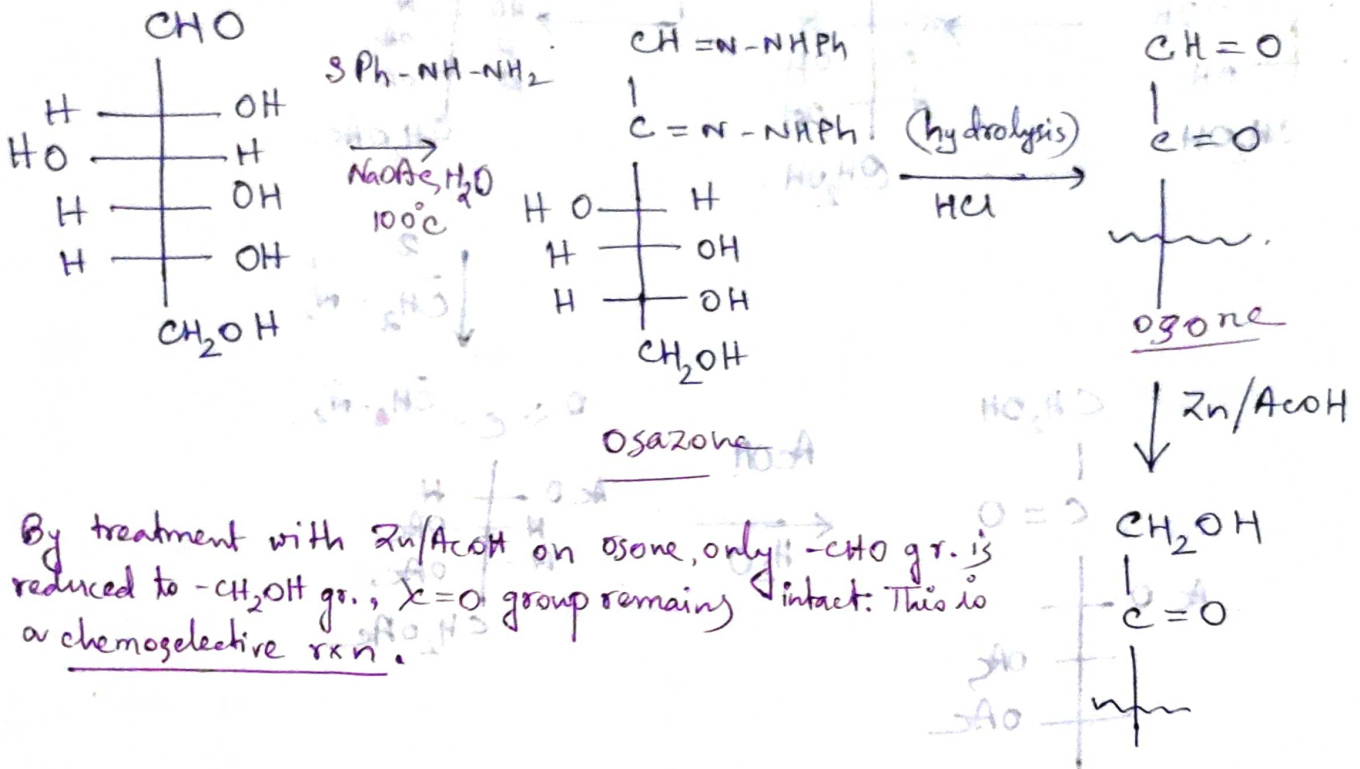 CHO
H OH
HO H
H OH
H OH
CH₂OH
3 Ph-NH-NH₂
NaOAc, H₂O
100°C
CH=N-NHPh
C=N-NHPh
HO H
H OH
H OH
CH₂OH
Osazone
(hydrolysis)
HCl
CH=O
C=O
osone
Zn/AcOH
CH₂OH
C=O
By treatment with Zn/AcOH on osone, only -CHO gr. is
reduced to -CH₂OH gr., >C=O group remains intact. This is
a chemoselective rxn.